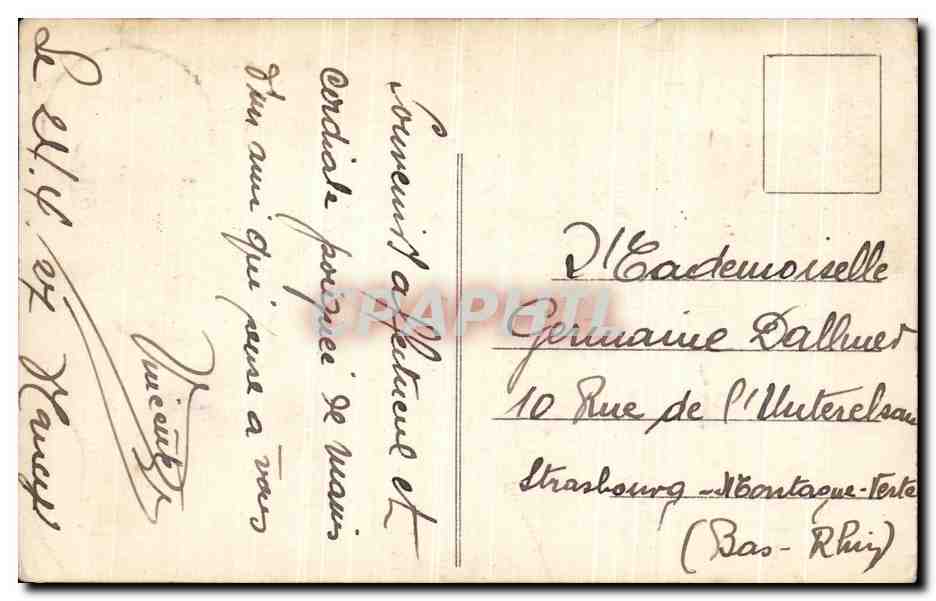 Le 21.4.27 Nancy
Souvenir affectueux et
cordiale poignée de mains
d'un ami qui pense à vous
Vincent
Mademoiselle
Germaine Dallmer
10 Rue de l'Unterelsau
Strasbourg-Montagne-Verte
(Bas-Rhin)
CPAPHIL